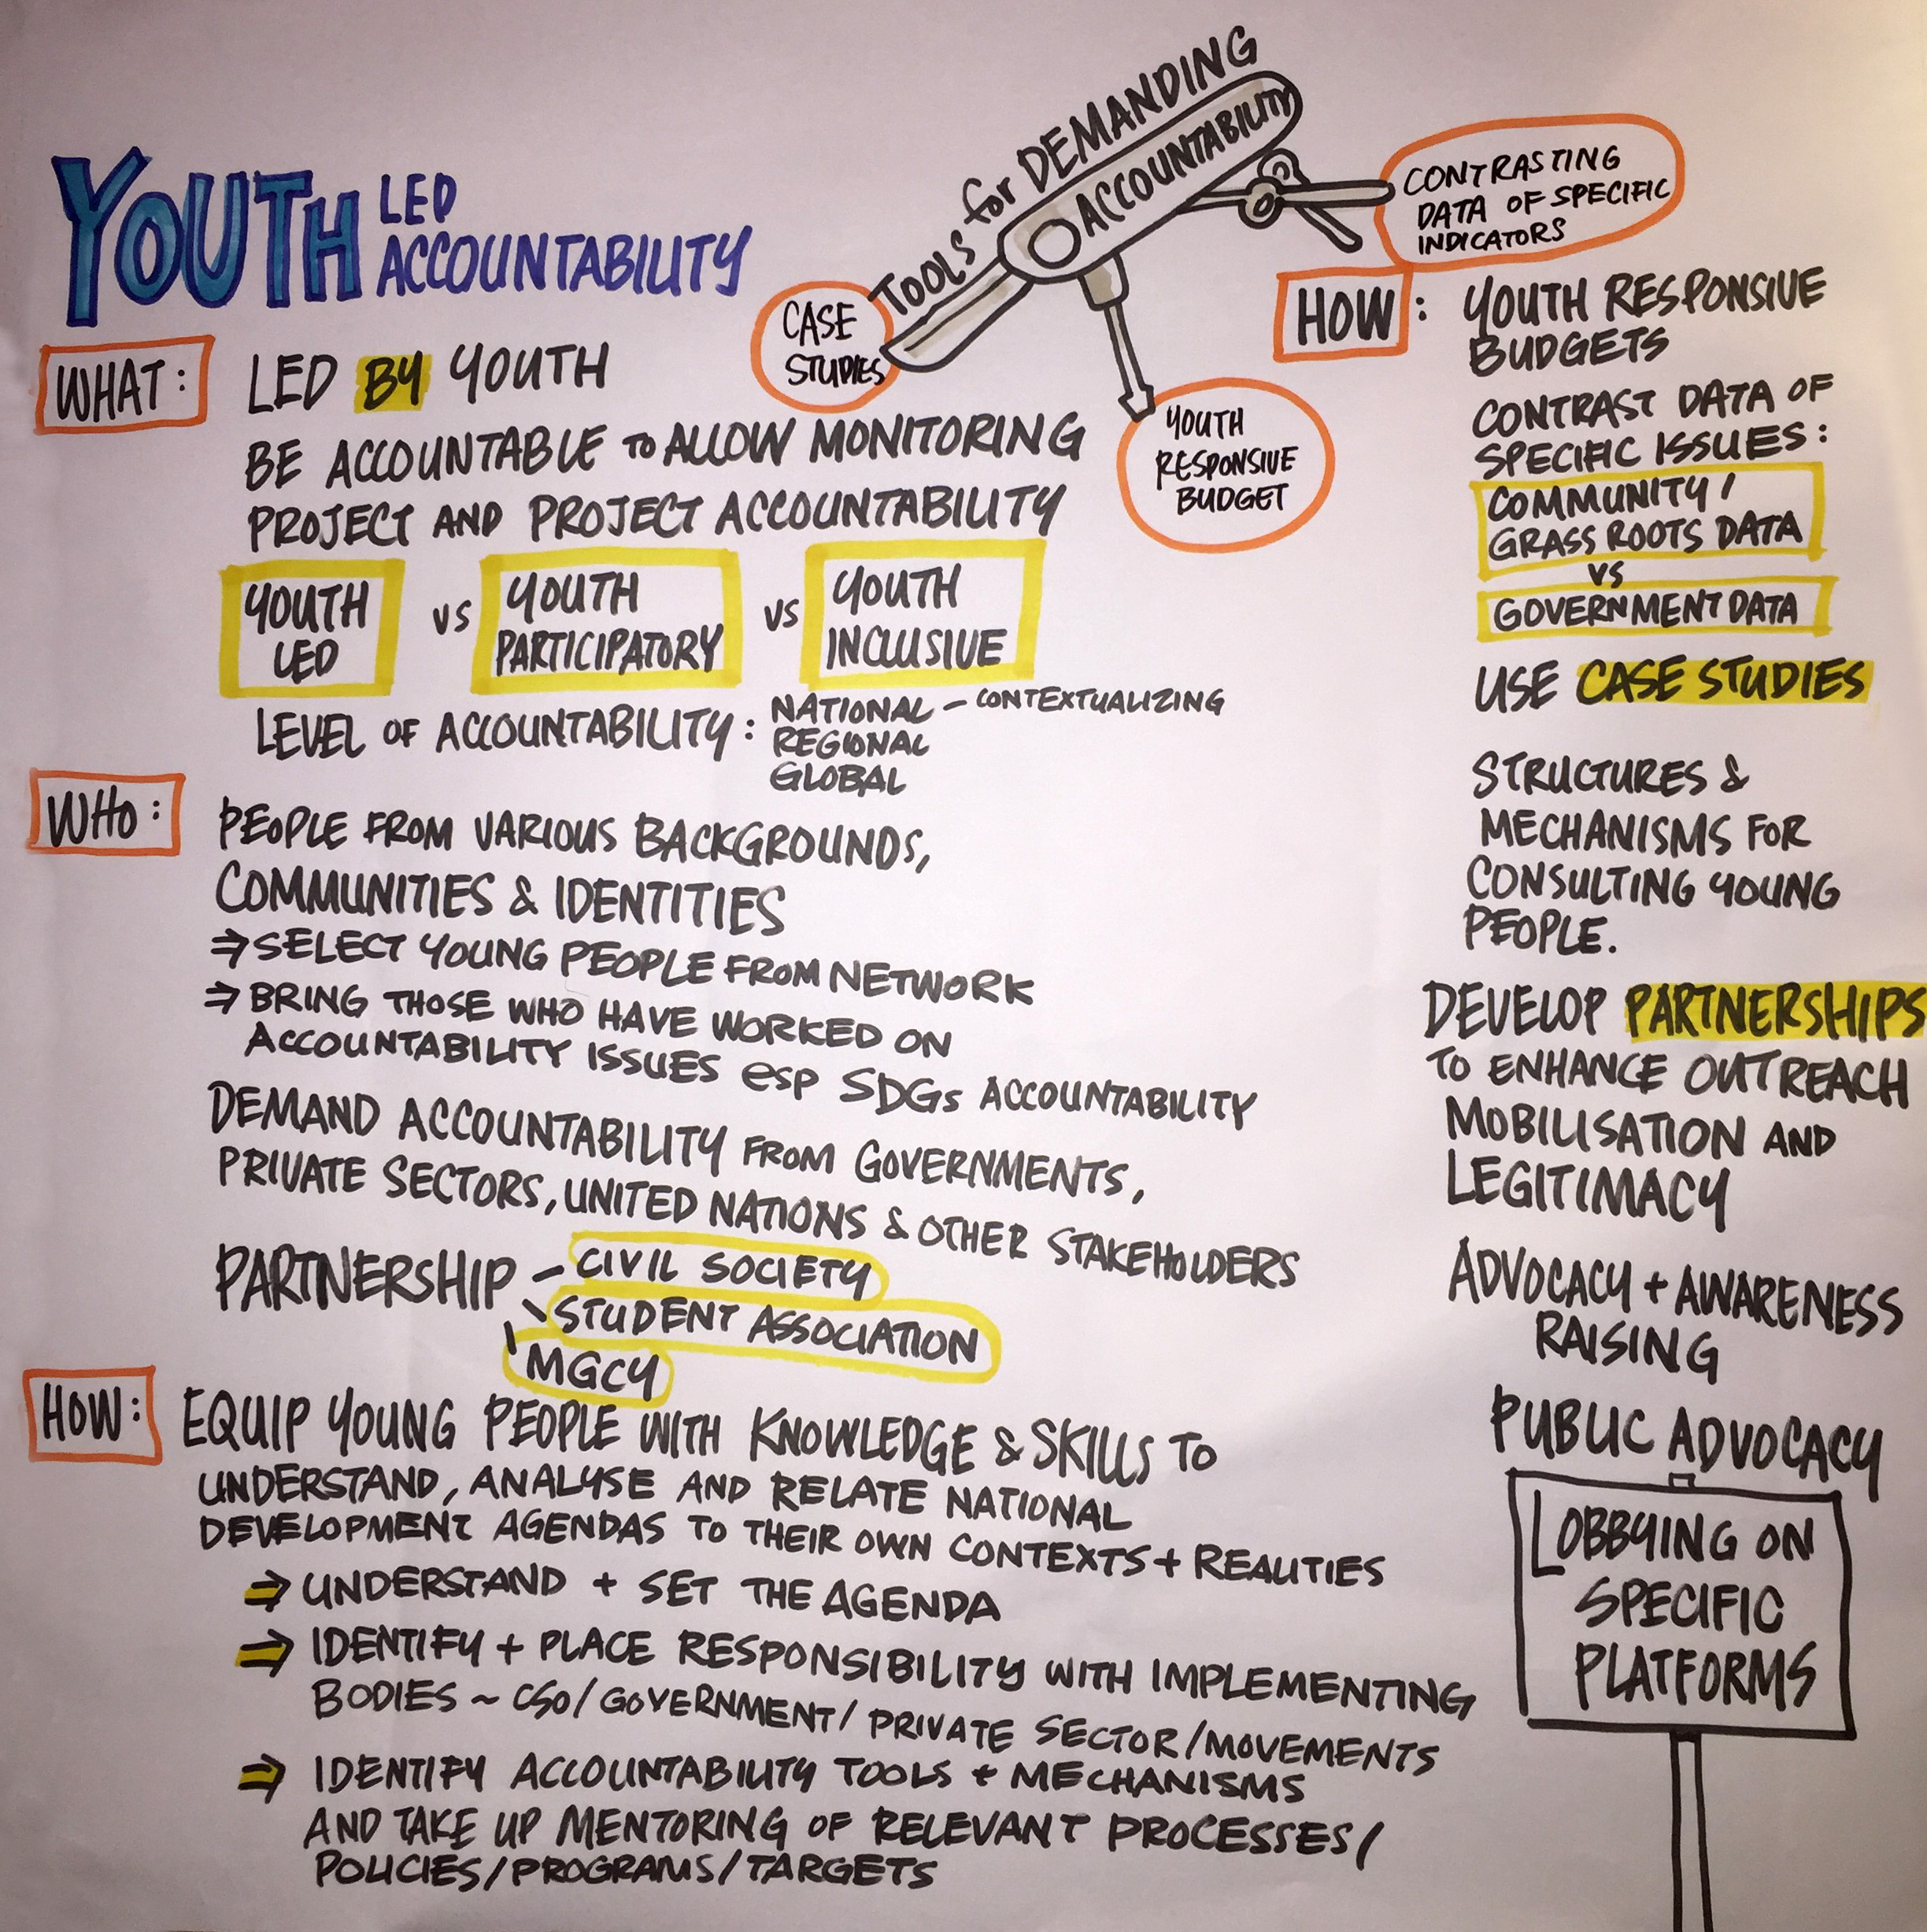 YOUTH LED
ACCOUNTABILITY
TOOLS for DEMANDING
ACCOUNTABILITY
CASE
STUDIES
YOUTH
RESPONSIVE
BUDGET
CONTRASTING
DATA OF SPECIFIC
INDICATORS
WHAT: LED BY YOUTH
BE ACCOUNTABLE TO ALLOW MONITORING
PROJECT AND PROJECT ACCOUNTABILITY
YOUTH
LED
VS
YOUTH
PARTICIPATORY
VS
YOUTH
INCLUSIVE
LEVEL OF ACCOUNTABILITY: NATIONAL - CONTEXTUALIZING
REGIONAL
GLOBAL
WHO: PEOPLE FROM VARIOUS BACKGROUNDS,
COMMUNITIES & IDENTITIES
⇒ SELECT YOUNG PEOPLE FROM NETWORK
⇒ BRING THOSE WHO HAVE WORKED ON
ACCOUNTABILITY ISSUES esp SDGs ACCOUNTABILITY
DEMAND ACCOUNTABILITY FROM GOVERNMENTS,
PRIVATE SECTORS, UNITED NATIONS & OTHER STAKEHOLDERS
PARTNERSHIP - CIVIL SOCIETY
STUDENT ASSOCIATION
MGCY
HOW: EQUIP YOUNG PEOPLE WITH KNOWLEDGE & SKILLS TO
UNDERSTAND, ANALYSE AND RELATE NATIONAL
DEVELOPMENT AGENDAS TO THEIR OWN CONTEXTS + REALITIES
⇒ UNDERSTAND + SET THE AGENDA
⇒ IDENTIFY + PLACE RESPONSIBILITY WITH IMPLEMENTING
BODIES ~ CSO/GOVERNMENT/PRIVATE SECTOR/MOVEMENTS
⇒ IDENTIFY ACCOUNTABILITY TOOLS + MECHANISMS
AND TAKE UP MENTORING OF RELEVANT PROCESSES/
POLICIES/PROGRAMS/TARGETS
HOW: YOUTH RESPONSIVE
BUDGETS
CONTRAST DATA OF
SPECIFIC ISSUES:
COMMUNITY/
GRASS ROOTS DATA
VS
GOVERNMENT DATA
USE CASE STUDIES
STRUCTURES &
MECHANISMS FOR
CONSULTING YOUNG
PEOPLE.
DEVELOP PARTNERSHIPS
TO ENHANCE OUTREACH
MOBILISATION AND
LEGITIMACY
ADVOCACY + AWARENESS
RAISING
PUBLIC ADVOCACY
LOBBYING ON
SPECIFIC
PLATFORMS